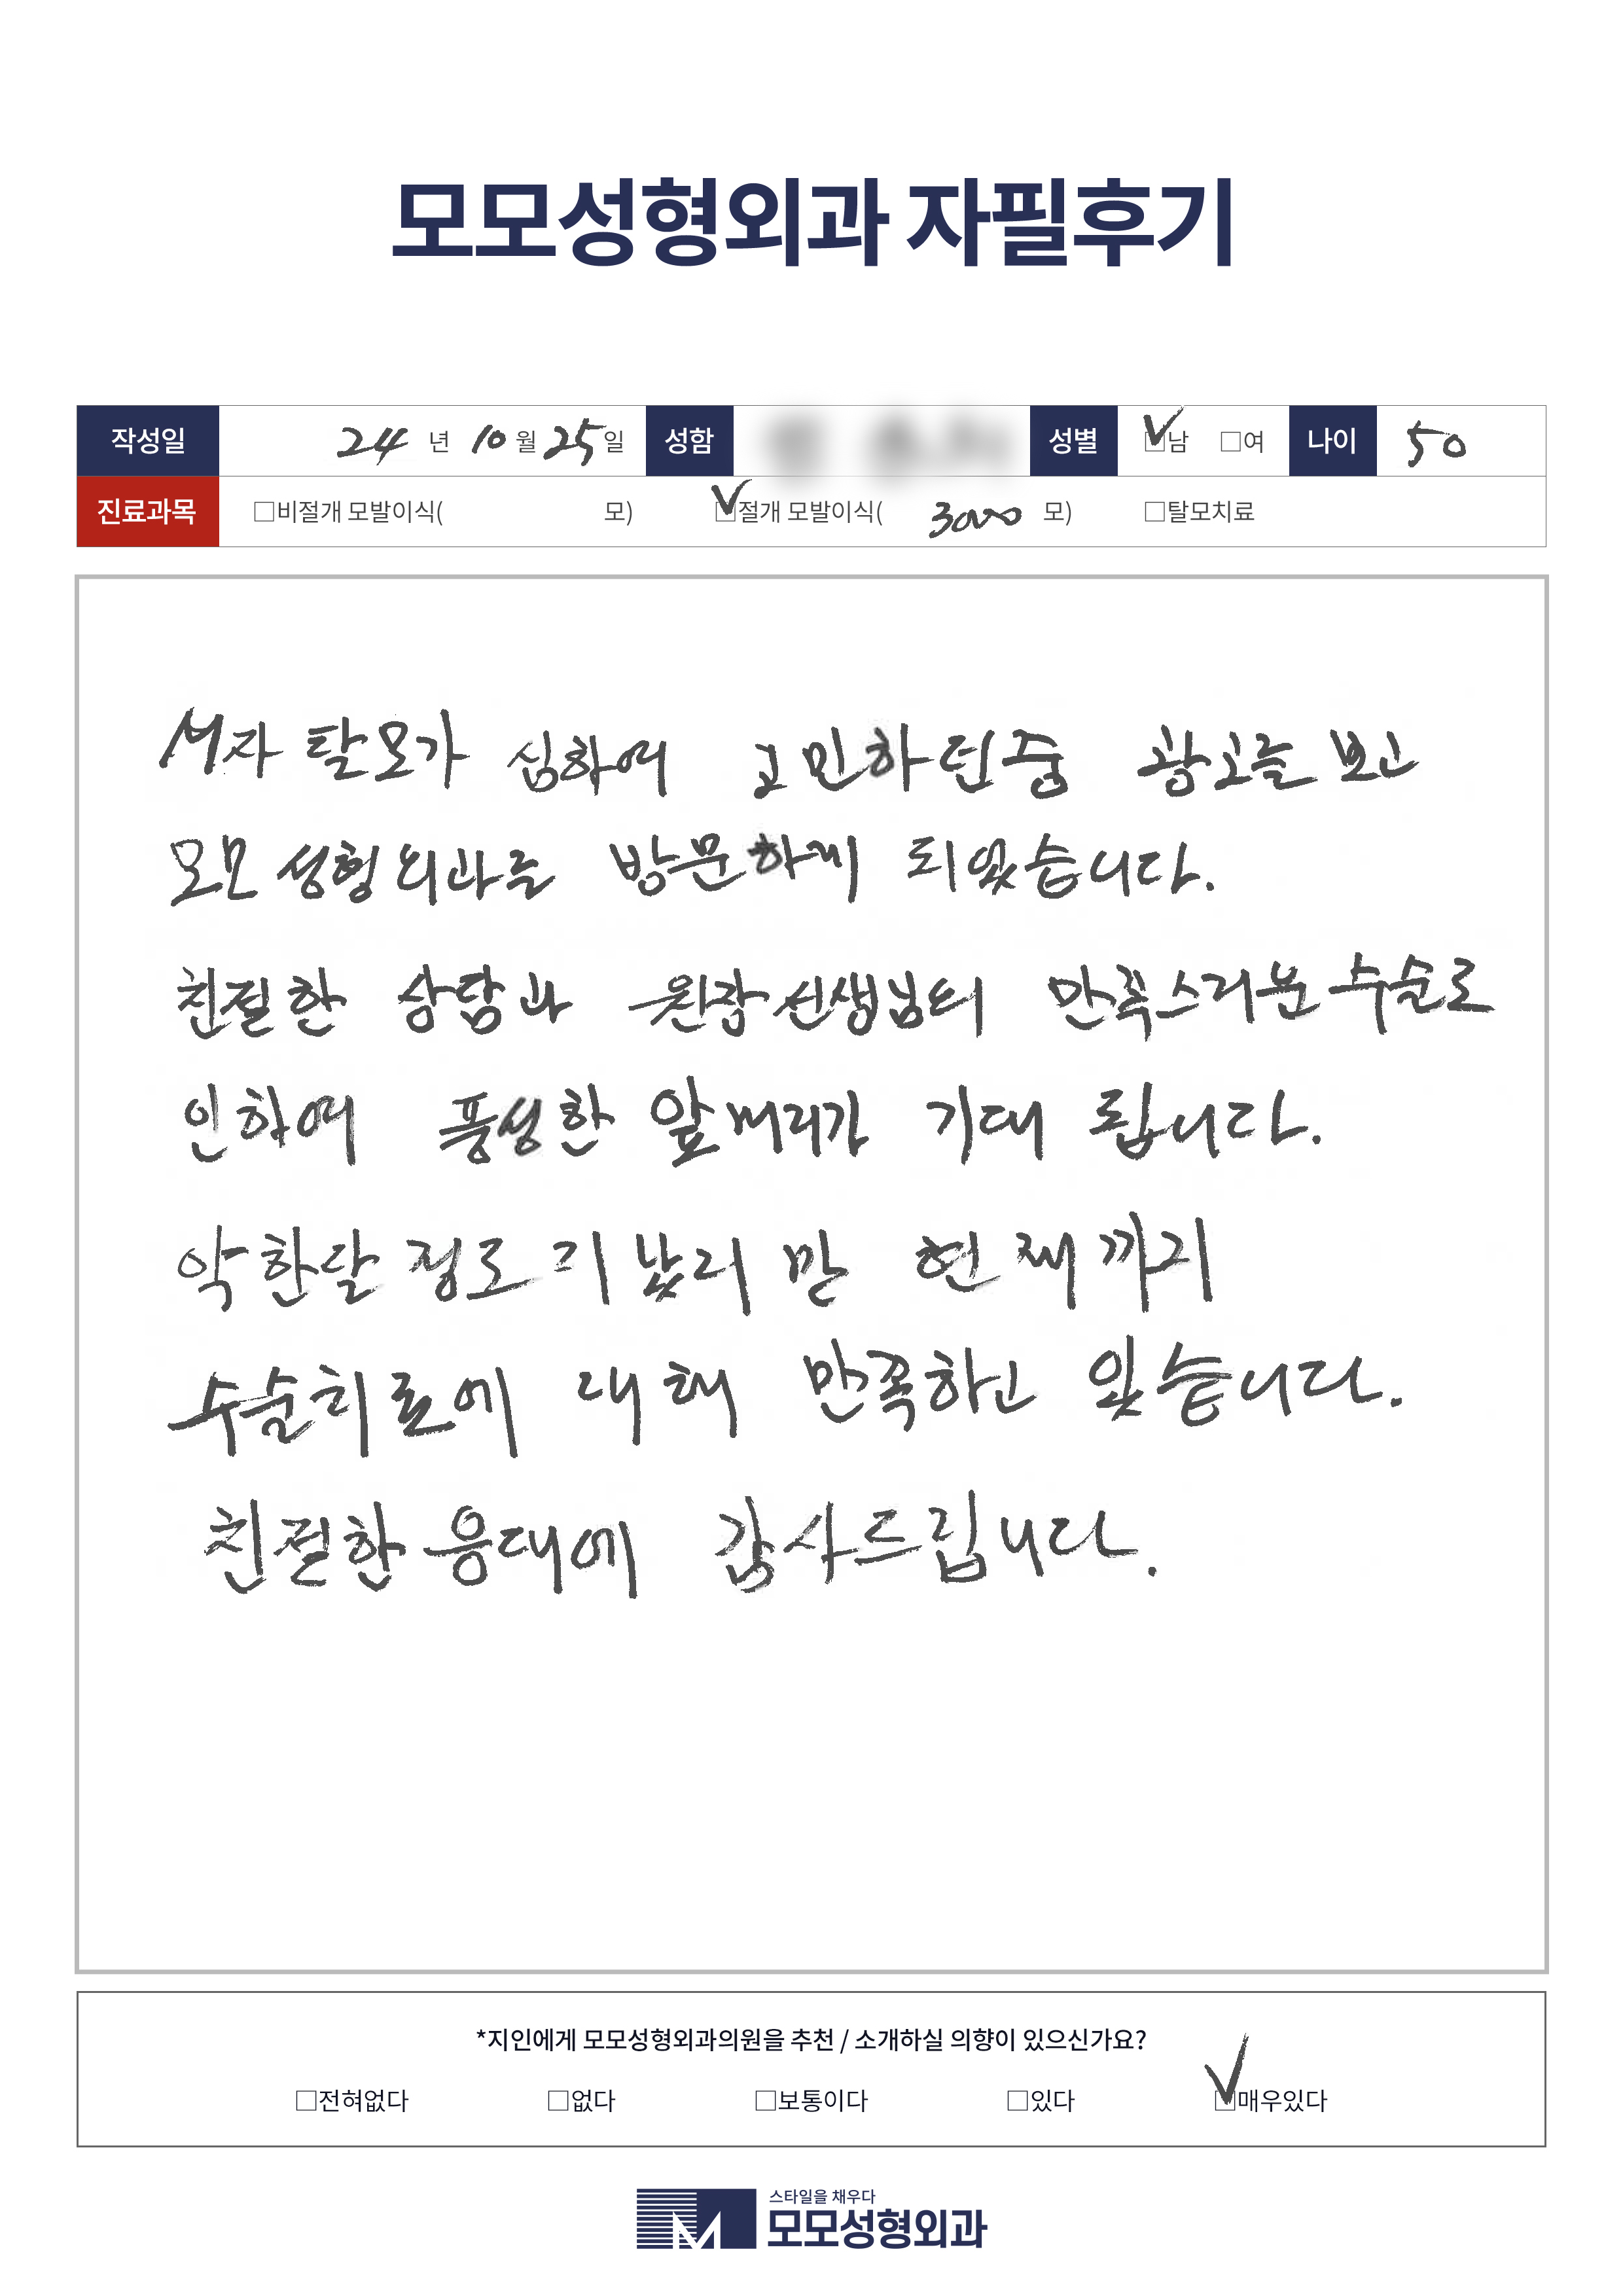 모모성형외과 자필후기
작성일 24 년 10 월 25 일 성함 성별 ☑남 □여 나이 50
진료과목 □비절개 모발이식( 모) ☑절개 모발이식( 3000 모) □탈모치료
M자 탈모가 심하여 고민하던중 광고를 보고
모모성형외과를 방문하게 되었습니다.
친절한 상담과 원장선생님의 만족스러운 수술로
인하여 풍성한 앞머리가 기대 됩니다.
약 한달 정도 지났지만 현재까지
수술치료에 대해 만족하고 있습니다.
친절한 응대에 감사드립니다.
*지인에게 모모성형외과의원을 추천 / 소개하실 의향이 있으신가요?
□전혀없다 □없다 □보통이다 □있다 ☑매우있다
스타일을 채우다
모모성형외과